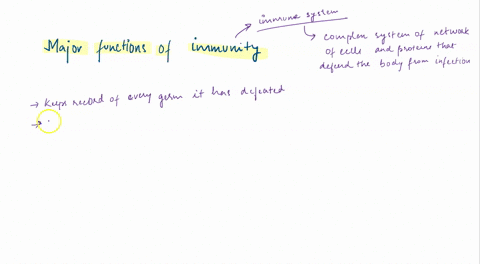 immune system
Major functions of immunity
complex system of network
of cells and proteins that
defend the body from infection
→ Keeps record of every germ it has defeated
→